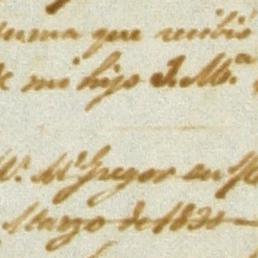 suma que recibió
de mi hijo J. M.ª
W.ᵐ McGregor en
Marzo de 1831